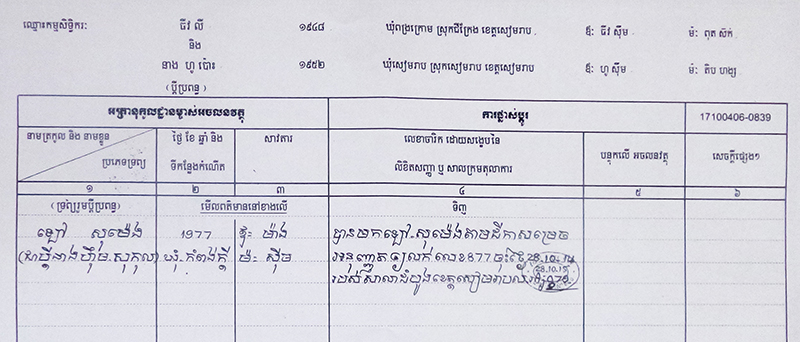 ឈ្មោះកម្មសិទ្ធិករៈ ធីវ លី ១៩៤៨ ឃុំពង្រក្រោម ស្រុកជីក្រែង ខេត្តសៀមរាប ឪៈ ធីវ ស៊ីម ម៉ៈ ពុត សំក់
និង
នាង ហូ ប៉ោះ ១៩៥២ ឃុំសៀមរាប ស្រុកសៀមរាប ខេត្តសៀមរាប ឪៈ ហូ ស៊ីម ម៉ៈ តិប ហង្ស
(ប្តីប្រពន្ធ)
អត្តានុកូលដ្ឋានម្ចាស់អចលនវត្ថុ ការផ្លាស់ប្តូរ 17100406-0839
នាមត្រកូល និង នាមខ្លួន
ប្រភេទទ្រព្យ
ថ្ងៃ ខែ ឆ្នាំ និង
ទីកន្លែងកំណើត
សាវតារ
លេខាចារិក ដោយសង្ខេបនៃ
លិខិតសញ្ញា ឬ សាលក្រមតុលាការ
បន្ទុកលើ អចលនវត្ថុ
សេចក្តីផ្សេងៗ
១ ២ ៣ ៤ ៥ ៦
(ទ្រព្យរួមប្តីប្រពន្ធ) មើលពត៌មាននៅខាងលើ ទិញ
ឡៅ សុម៉េង 1977 ឪៈ ម៉ាង បានមកឡៅ-សុម៉េងតាមដីកាសម្រេច
(ជាប្តីនាងហ៊ឹម-សុកុល) ឃុំ កំពង់ក្តី ម៉ៈ ស៊ីម អនុញ្ញាត លក់ លេខ 877 ចុះថ្ងៃ 28.10
របស់សាលាដំបូងខេត្តសៀមរាប